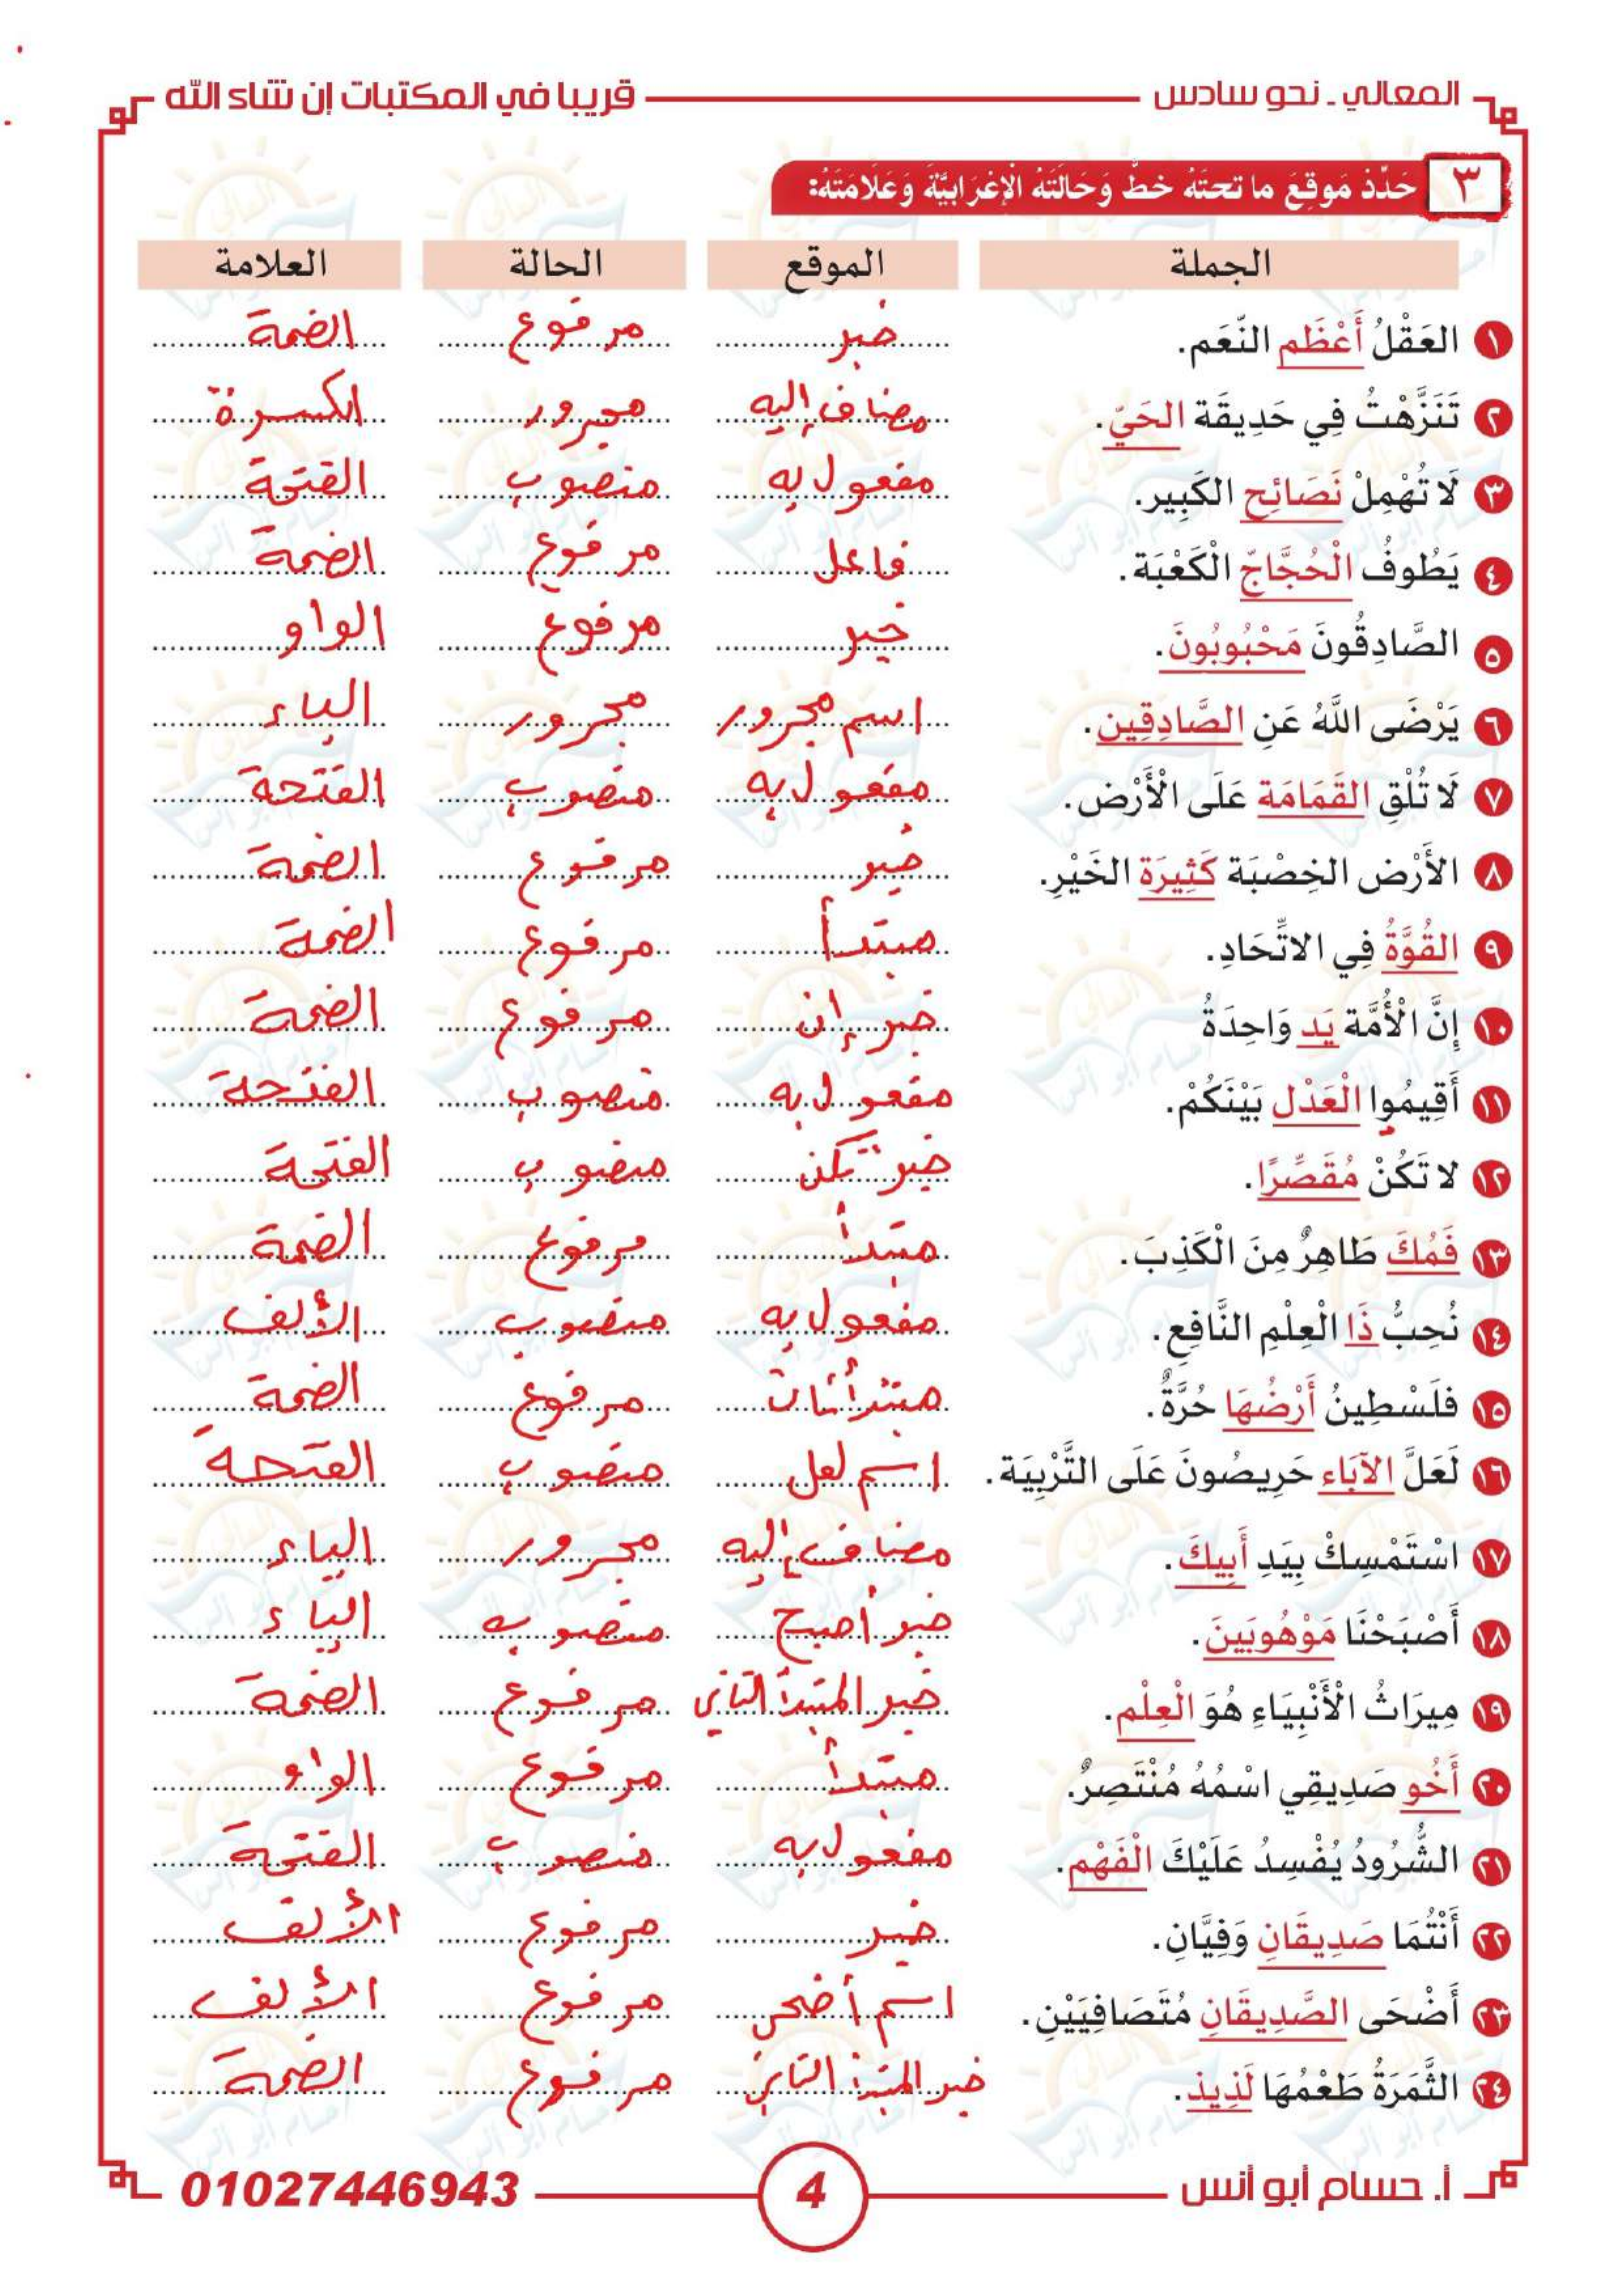 المعالي ـ نحو سادس
قريبا في المكتبات إن شاء الله
٣ حَدِّدْ مَوقِعَ ما تحتَهُ خطٌّ وَحَالَتَهُ الْإِعْرَابيَّةَ وَعَلَامَتَهُ:
الجملة الموقع الحالة العلامة
١ العَقْلُ أَعْظَم النِّعَم. خبر مرفوع الضمة
٢ تَنَزَّهْتُ فِي حَدِيقَة الحَيّ. مضاف إليه مجرور الكسرة
٣ لَا تُهْمِلْ نَصَائِح الكَبِير. مفعول به منصوب الفتحة
٤ يَطُوفُ الْحُجَّاجّ الْكَعْبَة. فاعل مرفوع الضمة
٥ الصَّادِقُونَ مَحْبُوبُونَ. خبر مرفوع الواو
٦ يَرْضَى اللَّهُ عَنِ الصَّادِقِين. اسم مجرور مجرور الياء
٧ لَا تُلْقِ القَمَامَة عَلَى الْأَرْض. مفعول به منصوب الفتحة
٨ الأَرْض الخِصْبَة كَثِيرَة الخَيْرِ. خبر مرفوع الضمة
٩ القُوَّةُ فِي الاتِّحَادِ. مبتدأ مرفوع الضمة
١٠ إِنَّ الْأُمَّة يَد وَاحِدَةُ خبر إن مرفوع الضمة
١١ أَقِيمُوا الْعَدْل بَيْنَكُمْ. مفعول به منصوب الفتحة
١٢ لا تَكُنْ مُقَصِّرًا. خبر تكن منصوب الفتحة
١٣ فَمُكَ طَاهِرٌ مِنَ الْكَذِبَ. مبتدأ مرفوع الضمة
١٤ نُحِبُّ ذَا الْعِلْمِ النَّافِعِ. مفعول به منصوب الألف
١٥ فلَسْطِينُ أَرْضُهَا حُرَّةٌ. مبتدأ ثان مرفوع الضمة
١٦ لَعَلَّ الآبَاء حَرِيصُونَ عَلَى التَّرْبِيَة. اسم لعل منصوب الفتحة
١٧ اسْتَمْسِكْ بِيَدِ أَبِيكَ. مضاف إليه مجرور الياء
١٨ أَصْبَحْنَا مَوْهُوبَينَ. خبر أصبح منصوب الياء
١٩ مِيرَاثُ الْأَنْبِيَاءِ هُوَ الْعِلْم. خبر المبتدأ الثاني مرفوع الضمة
٢٠ أَخُو صَدِيقِي اسْمُهُ مُنْتَصِرٌ. مبتدأ مرفوع الواو
٢١ الشُّرُودُ يُفْسِدُ عَلَيْكَ الْفَهْم. مفعول به منصوب الفتحة
٢٢ أَنْتُمَا صَدِيقَانِ وَفِيَّانِ. خبر مرفوع الألف
٢٣ أَضْحَى الصَّدِيقَانِ مُتَصَافِيَيْنِ. اسم أضحى مرفوع الألف
٢٤ الثَّمَرَةُ طَعْمُهَا لَذِيذ. خبر المبتدأ الثاني مرفوع الضمة
أ. حسام أبو أنس
4
01027446943